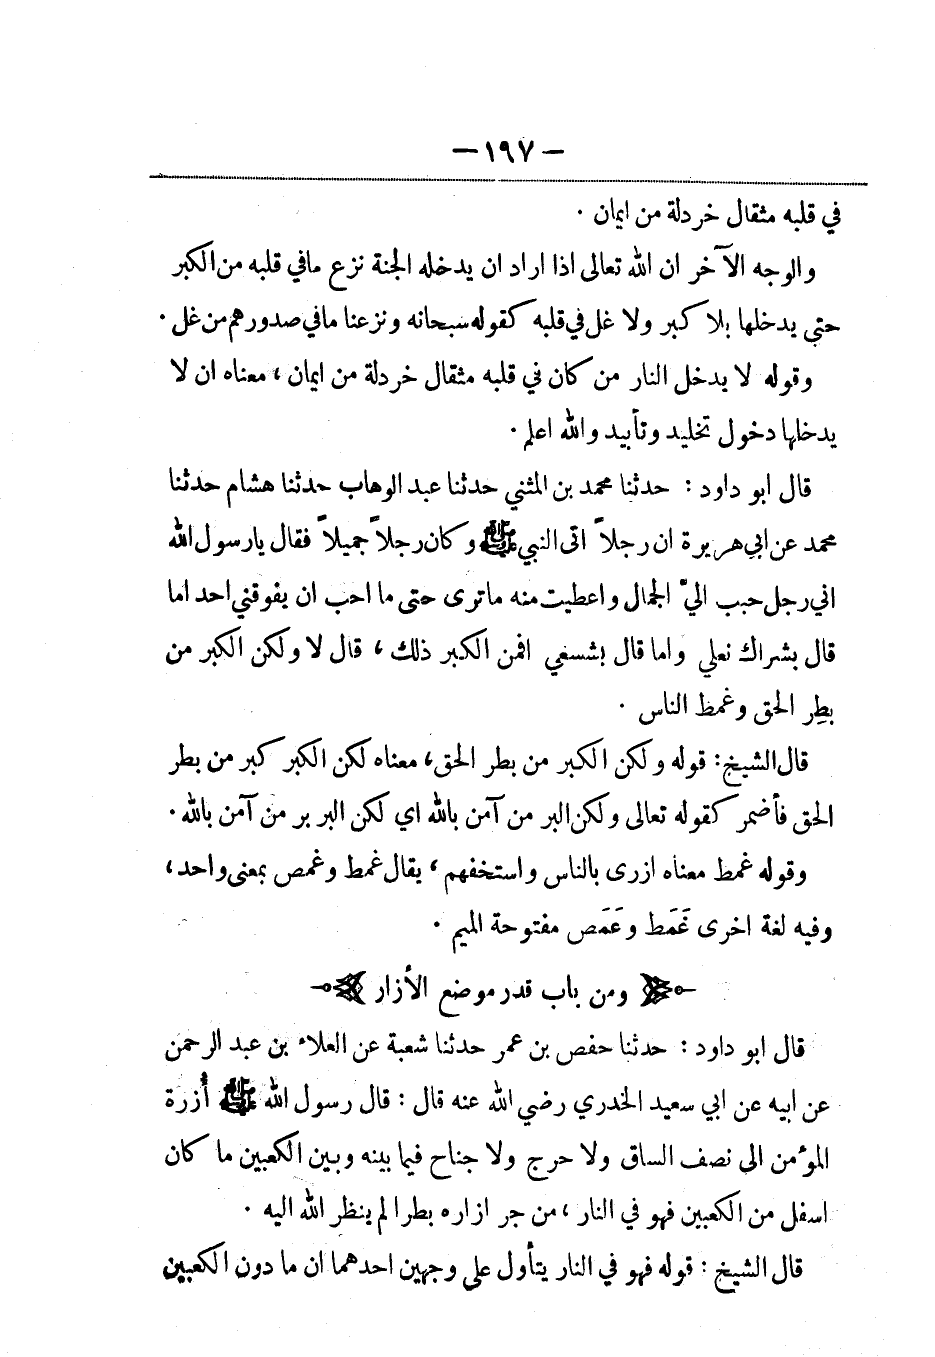 — ١٩٧ —
في قلبه مثقال خردلة من ايمان ٠
والوجه الآخر ان الله تعالى اذا اراد ان يدخله الجنة نزع مافي قلبه من الكبر
حتى يدخلها بلا كبر ولا غل في قلبه كقوله سبحانه ونزعنا مافي صدورهم من غل ٠
وقوله لا يدخل النار من كان في قلبه مثقال خردلة من ايمان ، معناه ان لا
يدخلها دخول تخليد وتأبيد والله اعلم ٠
قال ابو داود : حدثنا محمد بن المثني حدثنا عبد الوهاب حدثنا هشام حدثنا
محمد عن ابي هريرة ان رجلاً اتى النبي ﷺ وكان رجلاً جميلاً فقال يارسول الله
اني رجل حبب اليّ الجمال واعطيت منه ماترى حتى ما احب ان يفوقني احد اما
قال بشراك نعلي واما قال بشسعي افمن الكبر ذلك ، قال لا ولكن الكبر من
بطِر الحق وغمظ الناس ٠
قال الشيخ : قوله ولكن الكبر من بطر الحق ، معناه لكن الكبر كبر من بطر
الحق فأضمر كقوله تعالى ولكن البر من آمن بالله اي لكن البر بر من آمن بالله ٠
وقوله غمط معناه ازرى بالناس واستخفهم ، يقال غمط وغمص بمعنى واحد ،
وفيه لغة اخرى غَمَط وغَمَص مفتوحة الميم ٠
ومن باب قدر موضع الأزار
قال ابو داود : حدثنا حفص بن عمر حدثنا شعبة عن العلاء بن عبد الرحمن
عن ابيه عن ابي سعيد الخدري رضي الله عنه قال : قال رسول الله ﷺ أُزرة
المؤمن الى نصف الساق ولا حرج ولا جناح فيما بينه وبين الكعبين ما كان
اسفل من الكعبين فهو في النار ، من جر ازاره بطرا لم ينظر الله اليه ٠
قال الشيخ : قوله فهو في النار يتأول على وجهين احدهما ان ما دون الكعبين